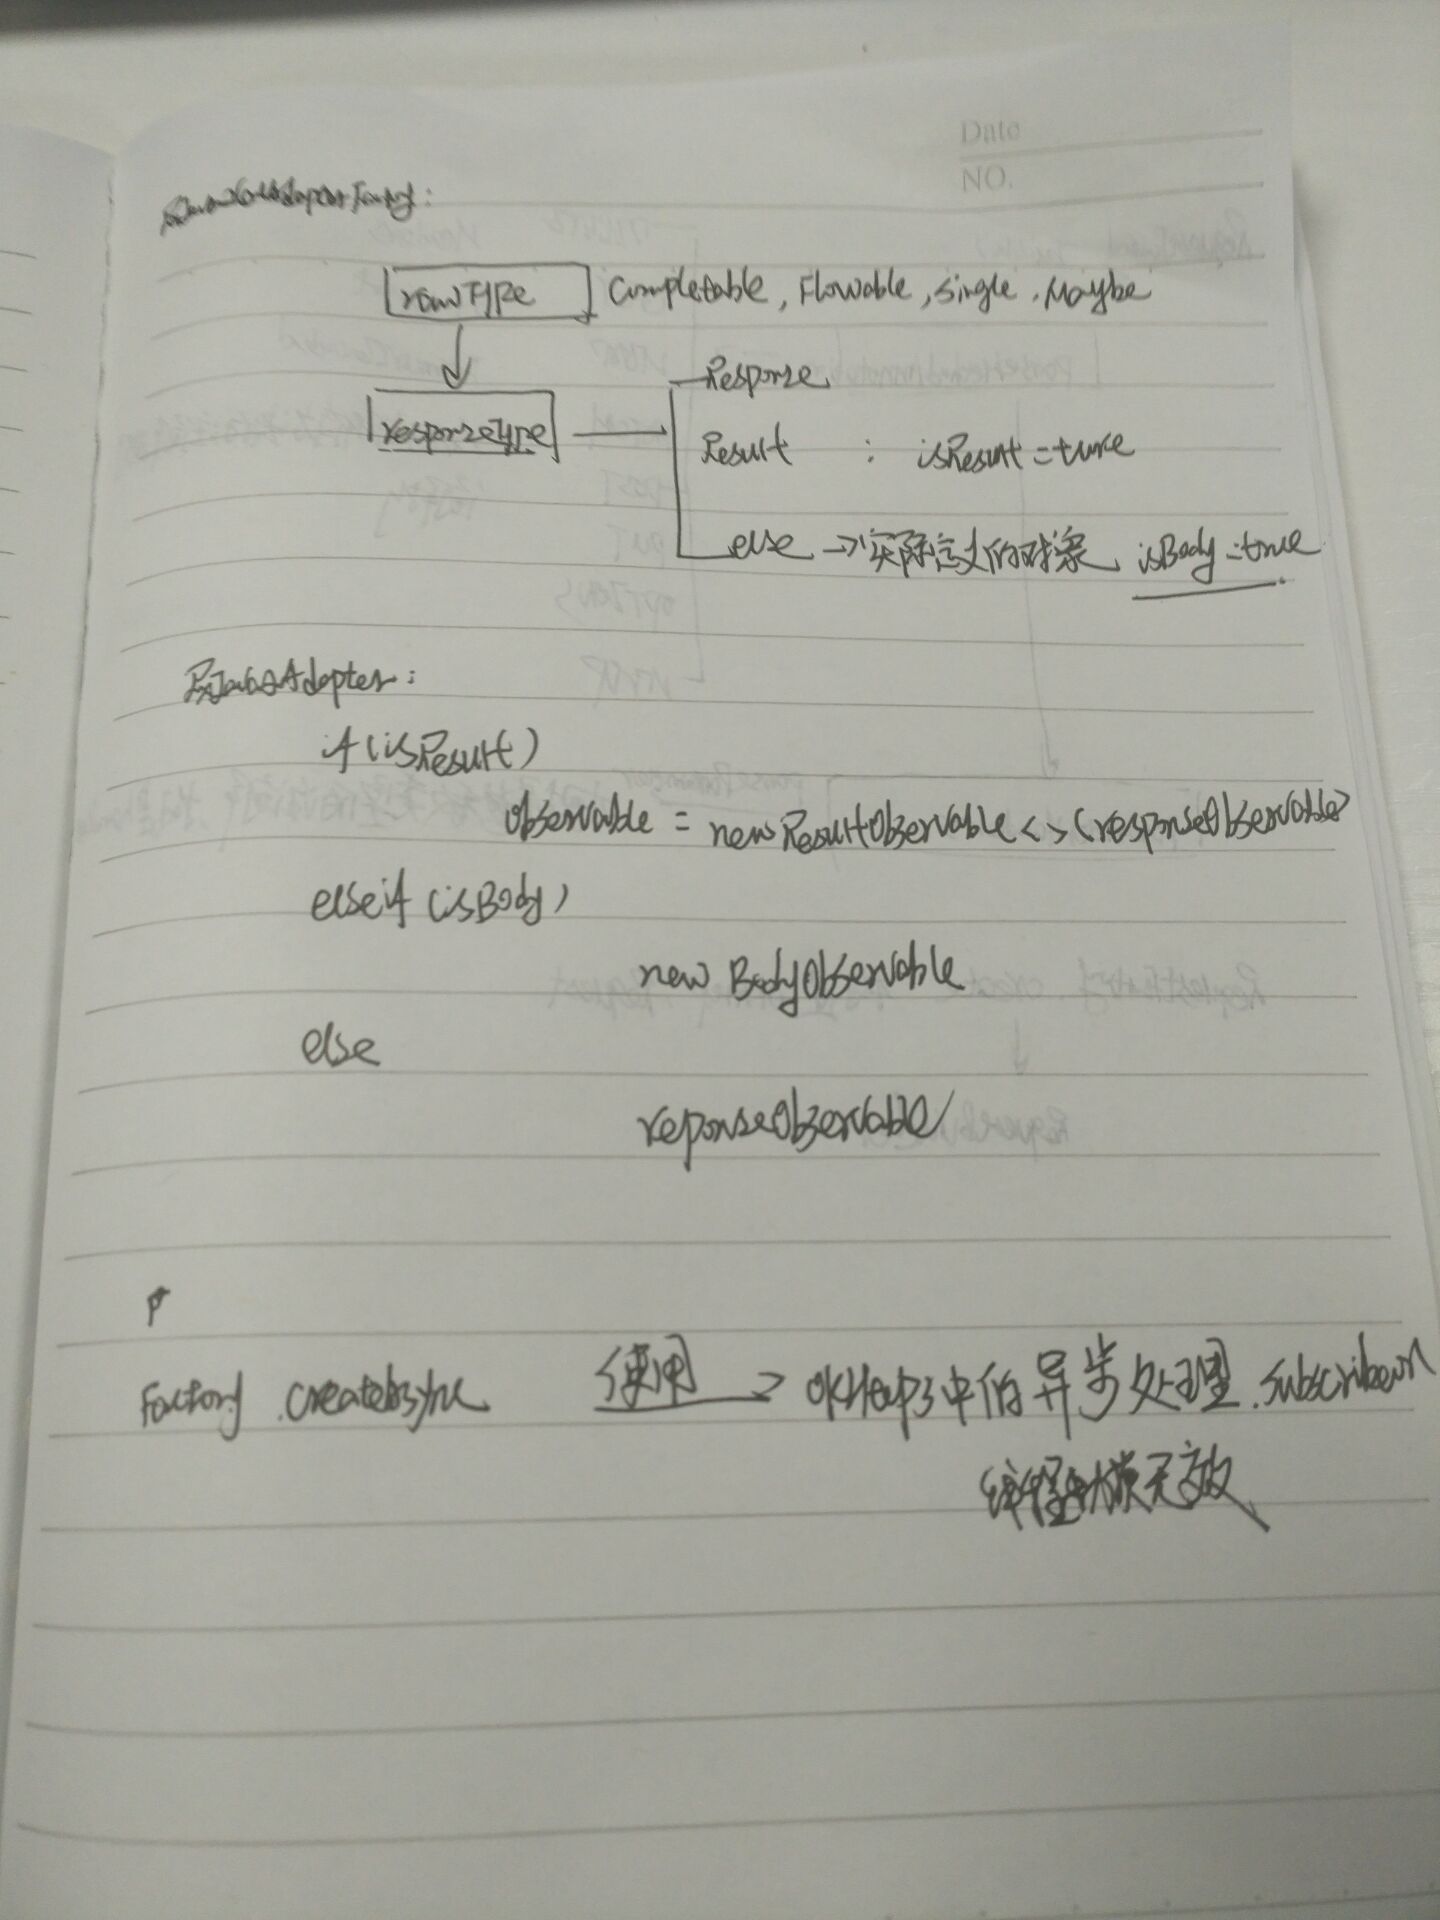 Date
NO.
rawType Completable, Flowable, single, Maybe
Response
responzeType
Result : isResult = ture
else → 实际定义的对象 isBody = true
RxJava2Adapter:
if (isResult)
observable = new ResultObservable < > (responseObservable)
else if (isBody)
new BodyObservable
else
reponseObservable
Factory .createAsync 使用 → okHttp3中的异步处理 .subscribeon
无效